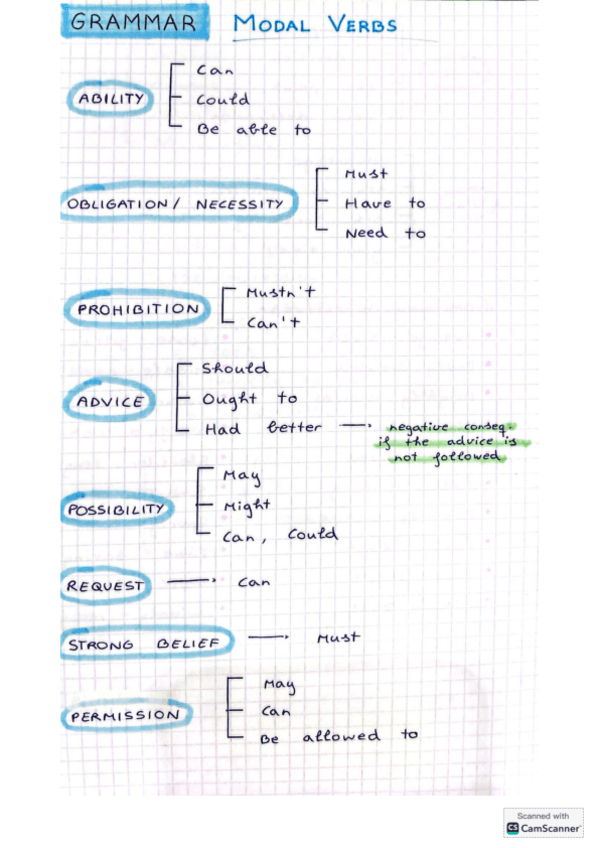 GRAMMAR MODAL VERBS
Can
ABILITY Could
Be able to
Must
OBLIGATION / NECESSITY Have to
Need to
Mustn't
PROHIBITION
Can't
Should
ADVICE Ought to
Had better → negative conseq.
if the advice is
not followed
May
POSSIBILITY Might
Can, Could
REQUEST → Can
STRONG BELIEF → Must
May
PERMISSION Can
Be allowed to
Scanned with
CS CamScanner